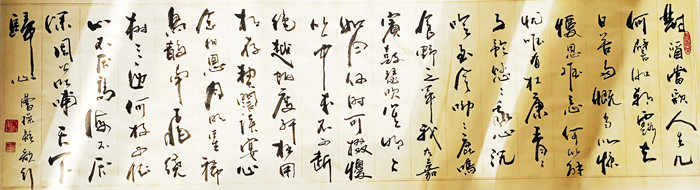 對酒當歌人生几
何譬如朝露去
日苦多慨當以慷
憂思難忘何以解
忧唯有杜康青青
子衿悠悠我心沉
吟至今呦呦鹿鳴
食野之苹我有嘉
賓鼓瑟吹笙明明
如月何時可掇憂
從中來不可斷
絶越陌度阡枉用
相存契闊談宴心
念舊恩月明星稀
烏鵲南飛繞
樹三匝何枝可依
山不厭高海不厭
深周公吐哺天下
歸心 曹操短歌行